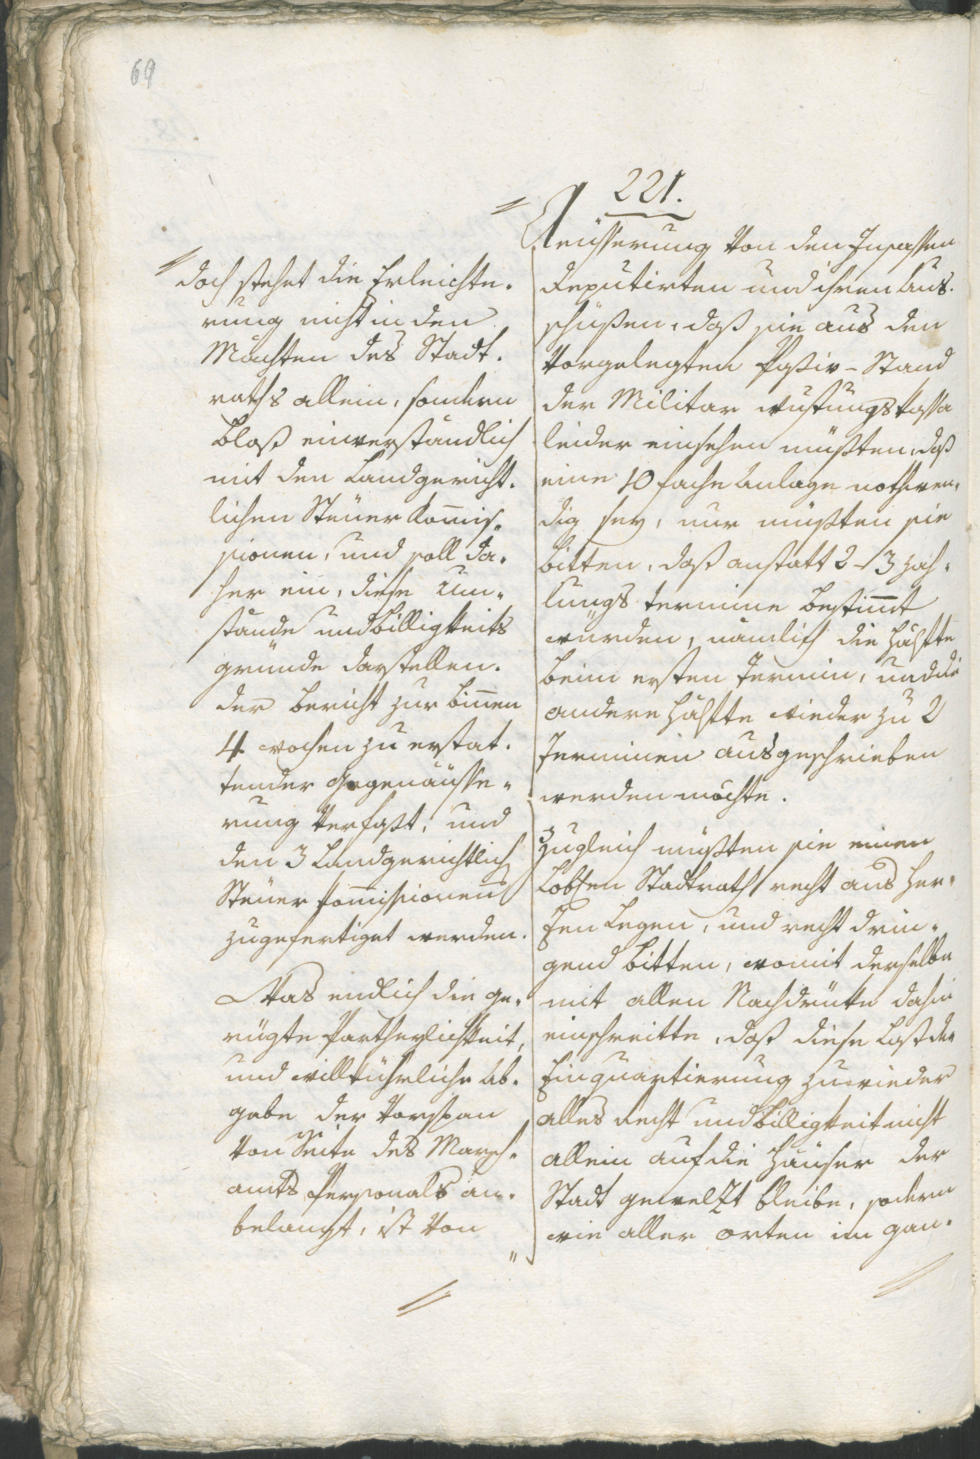 69
221.
doch stehet die Erleichte-
rung nicht in den
Mächten des Stadt-
raths allein, sondern
bloß einverständlich
mit den Landgericht-
lichen Steüer Kommis-
sionen, und soll da-
her ein, diese Um-
stände und Billigkeits
gründe darstellen-
der Bericht zur binnen
4 wochen zu erstat-
tender Gegenäusse-
rung verfaßt, und
den 3 Landgerichtlich
Steüer Kommissionen
zugefertiget werden.
Was endlich die ge-
rügte Partheylichkeit,
und willkührliche Ab-
gabe der Vorspan
von Seite des Marsch-
amts Personals an-
belangt, ist von
Aeüsserung von den Insassen
Deputirten und ihren Aus-
schüßen, daß sie aus den
vorgelegten Passiv-Stand
der Militar rustungs Kassa
leider einsehen müßten, daß
eine 10 fache Anlage nothwen-
dig sey, nur müßten sie
bitten, daß anstatt 2 - 3 Zah-
lungs termine bestimmt
würden, nämlich die Hälfte
beim ersten Termin, und die
andere Hälfte wieder zu 2
Terminen ausgeschrieben
werden möchte.
Zugleich müßten sie einen
Löbl.en Stadtrath recht ans Her-
zen legen, und recht drin-
gend bitten, womit derselbe
mit allen Nachdrucke dahin
einschreitte, daß diese Last der
Einquartierung zuwieder
alles Recht und Billigkeit nicht
allein auf die Häuser der
Stadt gewelzt bleibe, sodern
wie aller orten im gan-